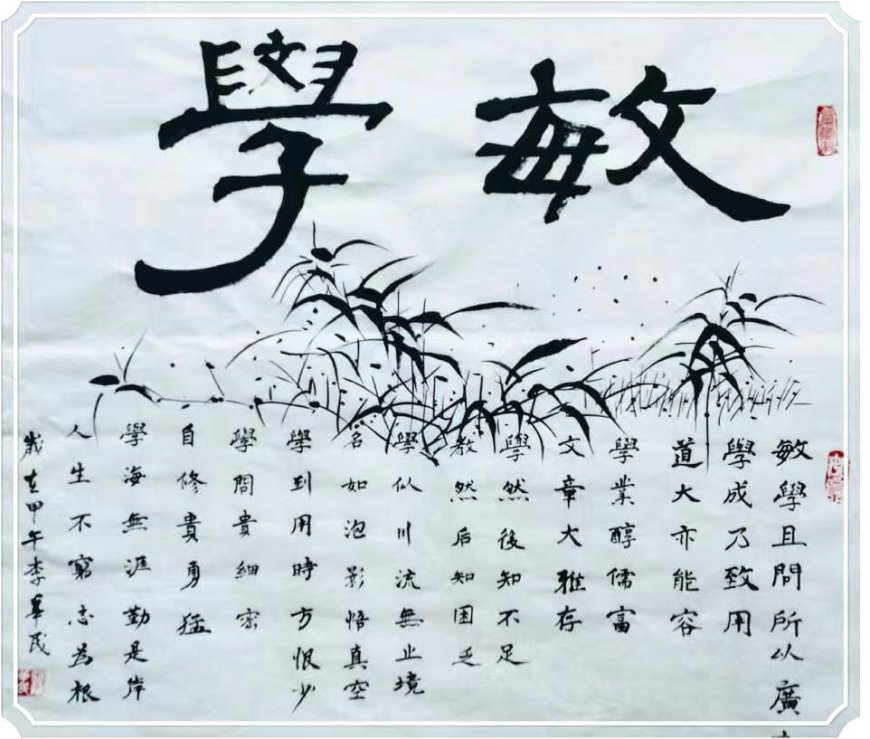 敏學
敏學且問所以廣
學成乃致用
道大亦能容
學業醇儒富
文章大雅存
學然後知不足
教然后知困乏
學似川流無止境
名如泡影悟真空
學到用時方恨少
學問貴細密
自修貴勇猛
學海無涯勤是岸
人生不窮志為根
歲在甲午李華民